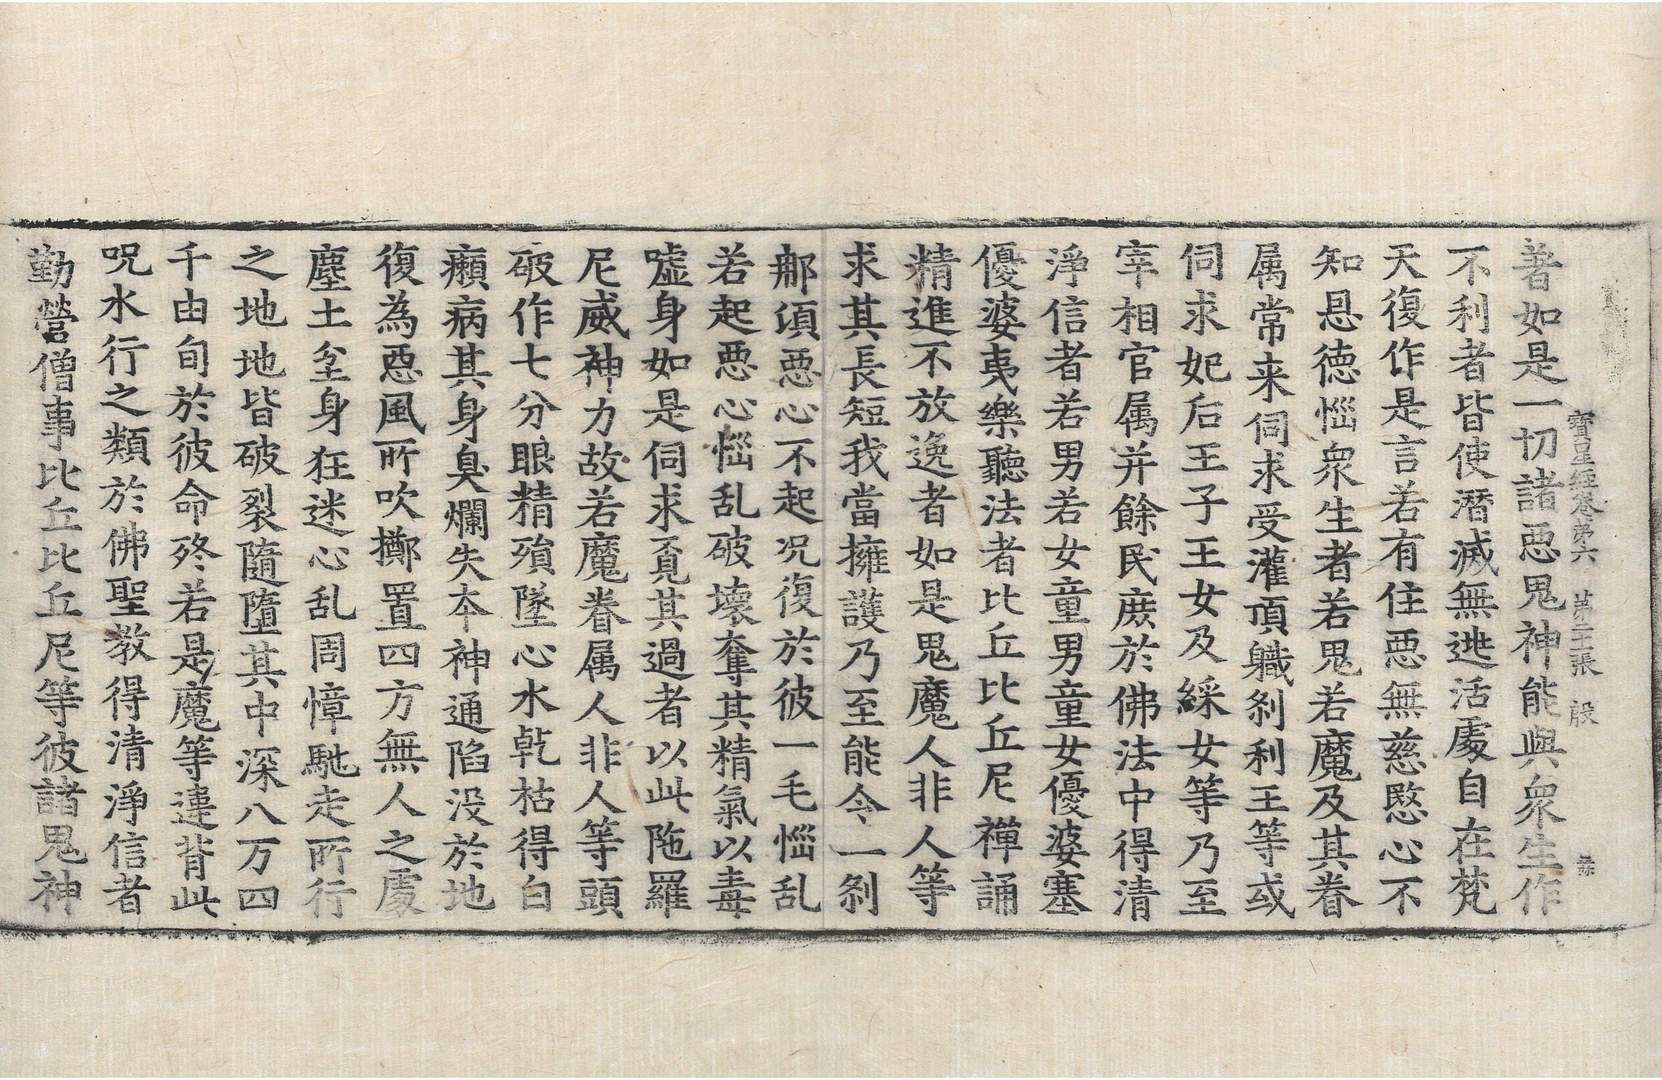 寶星經卷第六 第二十張 殷
著如是一切諸惡鬼神能與衆生作
不利者皆使潛滅無逃活處自在梵
天復作是言若有住惡無慈愍心不
知恩德惱衆生者若鬼若魔及其眷
属常来伺求受灌頂軄刹利王等或
伺求妃后王子王女及綵女等乃至
宰相官属并餘民庶於佛法中得清
淨信者若男若女童男童女優婆塞
優婆夷樂聽法者比丘比丘尼禪誦
精進不放逸者如是鬼魔人非人等
求其長短我當擁護乃至能令一刹
那頃惡心不起况復於彼一毛惱乱
若起惡心惱乱破壞奪其精氣以毒
嘘身如是伺求覔其過者以此陁羅
尼威神力故若魔眷属人非人等頭
破作七分眼精殞墜心水乹枯得白
癩病其身臭爛失夲神通陷没於地
復為惡風所吹擲置四方無人之處
塵土坌身狂迷心乱周慞馳走所行
之地地皆破裂隨墮其中深八万四
千由旬於彼命终若是魔等違背此
呪水行之類於佛聖教得清淨信者
勤營僧事比丘比丘尼等彼諸鬼神